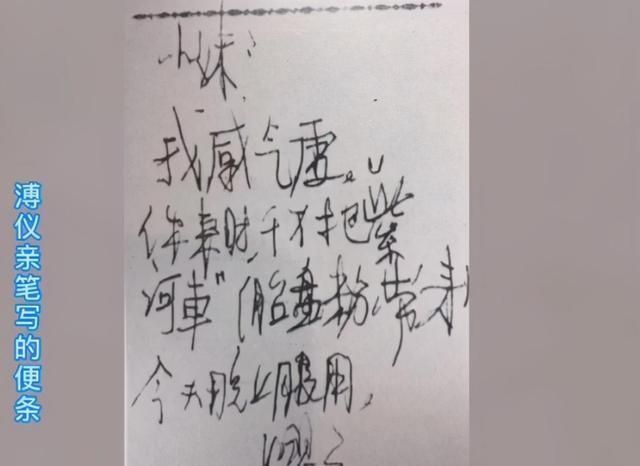 溥仪亲笔写的便条
小妹：
我感气虚。
你来时，千万把“紫
河車”(胎盘粉)带来，
今天晚上服用。